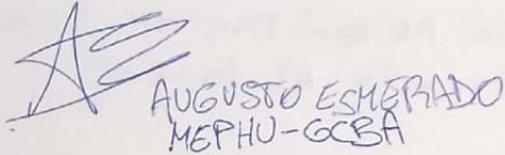 AUGUSTO ESMERADO
MEPHU-GCBA